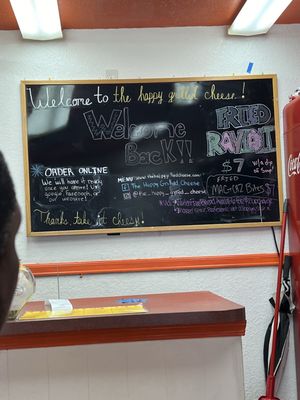 Welcome to the happy grilled cheese!
Welcome
Back!!
FRIED
RAVIOLI
$7
ORDER ONLINE
We will have it ready
once you order! Use
google, Facebook, or
our website!
MENU: www.thehappygrilledcheese.com
The Happy Grilled Cheese
@the_happy_grilled_cheese
FRIED
MAC+CHZ Bites $7
Thanks, take it cheesy!
Coca-Cola